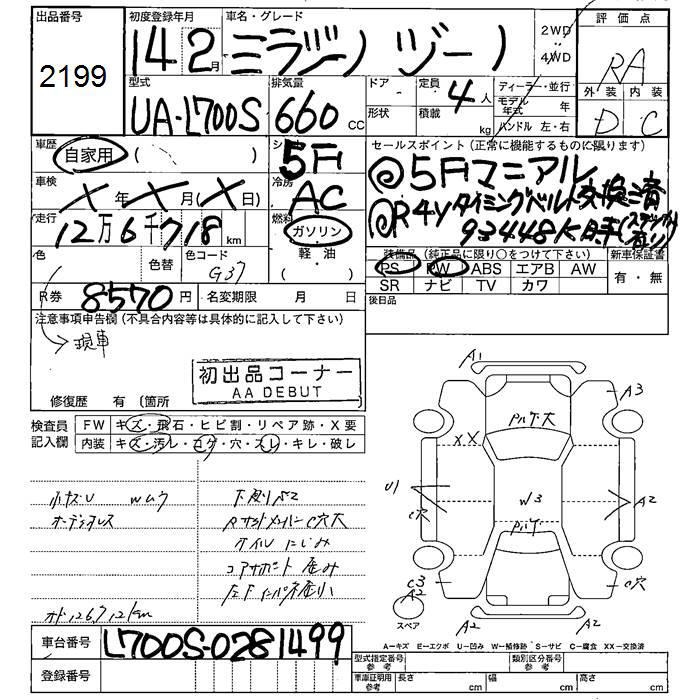 出品番号 初度登録年月 車名・グレード 評価点
2199 14 2月 ミラジーノ ジーノ 2WD 4WD RA
型式 排気量 ドア 定員 ディーラー・並行 外装 内装
UA-L700S 660 CC 形状 4人 積載 kg モデル年式 年 ハンドル 左・右 D C
車歴 自家用 ( ) シフト 5F セールスポイント (正常に機能するものに限ります)
車検 X年X月(X日) 冷房 AC ◎5Fマニアル
◎R4Yタイミングベルト交換済
走行 12万6千718km 燃料 ガソリン 93448K時
色 色替 色コード G37 軽・油 装備品 (純正品に限り○をつけて下さい) 新車保証書
PS PW ABS エアB AW 有・無
R券 8570円 名変期限 月 日 SR ナビ TV カワ
後日品
注意事項申告欄 (不具合内容等は具体的に記入して下さい)
現車
初出品コーナー
AA DEBUT
修復歴 有 (箇所
検査員 FW キズ・飛石・ヒビ割・リペア跡・X要
記入欄 内装 キズ・汚レ・コゲ・穴・スレ・キレ・破レ
小キズU Wムラ 下廻りサビ
オーディオレス Rサイドメンバー C穴大
オイルにじみ
コアサポート 歪み
メーター 126712km
車台番号 L700S-0281499
登録番号
A1
A3
パルケ・大
XX
U1
C穴
W3
A2
C3
A2
C穴
スペア
A2
A2
A-キズ E-エクボ U-凹み W-補修跡 S-サビ C-腐食 XX-交換済
型式指定番号 参考 類別区分番号 参考
車庫証明用 参考 長さ cm 幅 cm 高さ cm